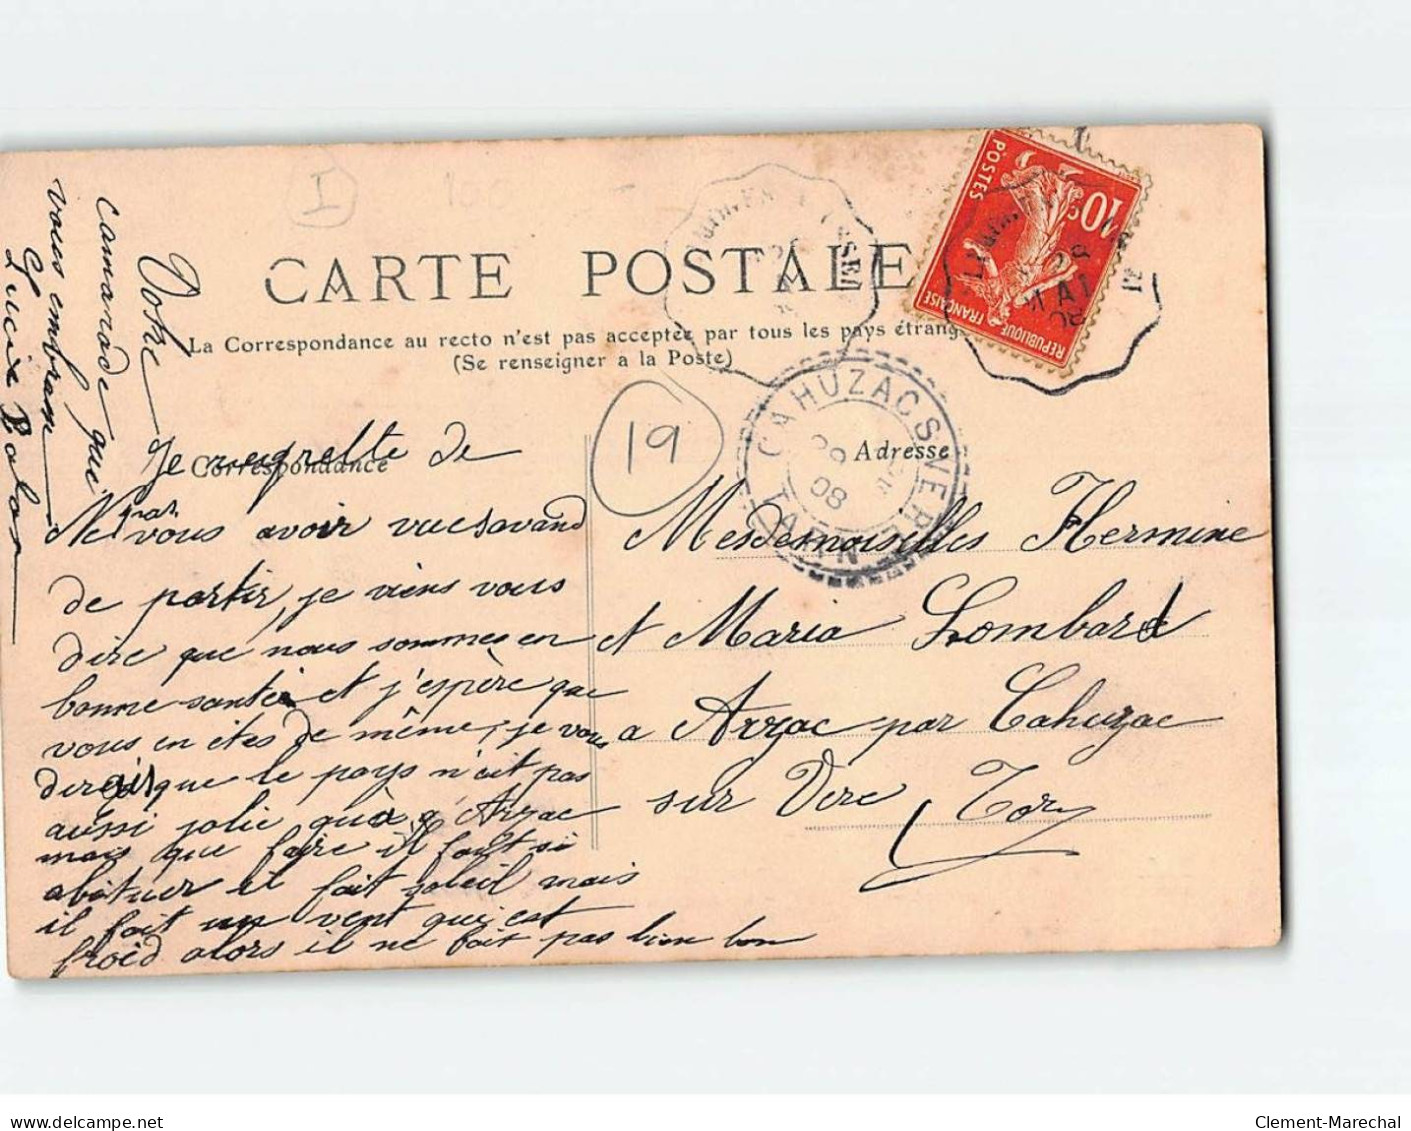 CARTE POSTALE
La Correspondance au recto n'est pas acceptée par tous les pays étrang
(Se renseigner a la Poste)
Correspondance
Adresse
19
I
100
10c
POSTES
REPUBLIQUE FRANÇAISE
CAHUZAC S VERE
TARN
08
MAI
Je regrette de
Ne pas vous avoir vues avand
de partir, je viens vous
dire que nous sommes en
bonne santée et j'espère que
vous en êtes de même, je vous
dirais que le pays n'est pas
aussi jolie qu'à Arzac
mais que faire il faut si
abituer il fait soleil mais
il fait un vent qui est
froid alors il ne fait pas bien bon
Votre
camarade qui
vous embrasse
Lucie
Mesdemoiselles Hermine
et Maria Lombard
a Arzac par Cahuzac
sur Vère Tarn
Clement-Marechal